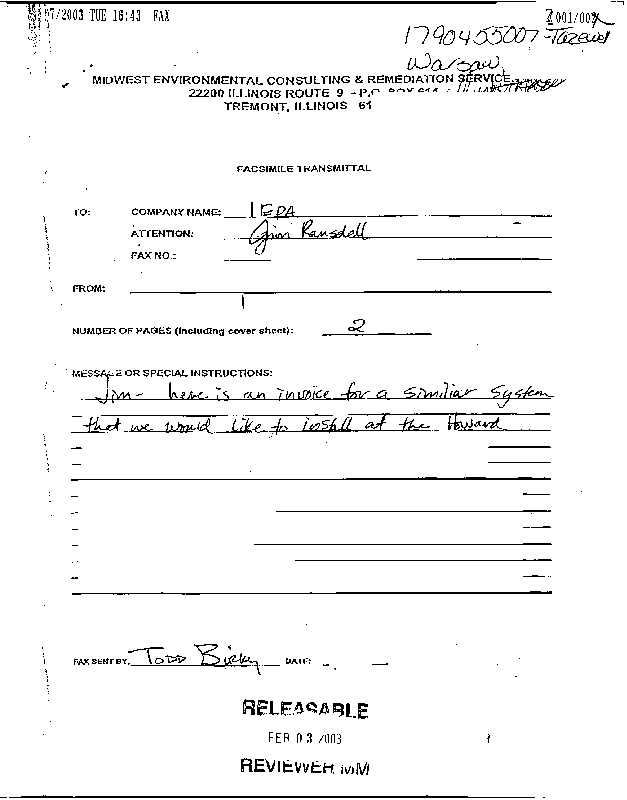 7/2003 TUE 16:43 FAX
001/00
1790455007-Tazewel
Warsaw
MIDWEST ENVIRONMENTAL CONSULTING & REMEDIATION SERVICE
22200 ILLINOIS ROUTE 9 - P.O.
TREMONT, ILLINOIS 61
FACSIMILE TRANSMITTAL
TO: COMPANY NAME: IEPA
ATTENTION: Jim Ransdell
FAX NO.:
FROM:
NUMBER OF PAGES (Including cover sheet): 2
MESSAGE OR SPECIAL INSTRUCTIONS:
Jim- here is an invoice for a similiar system
that we would like to install at the Howard
FAX SENT BY: Todd DATE:
RELEASABLE
FEB 03 2003
REVIEWER MM